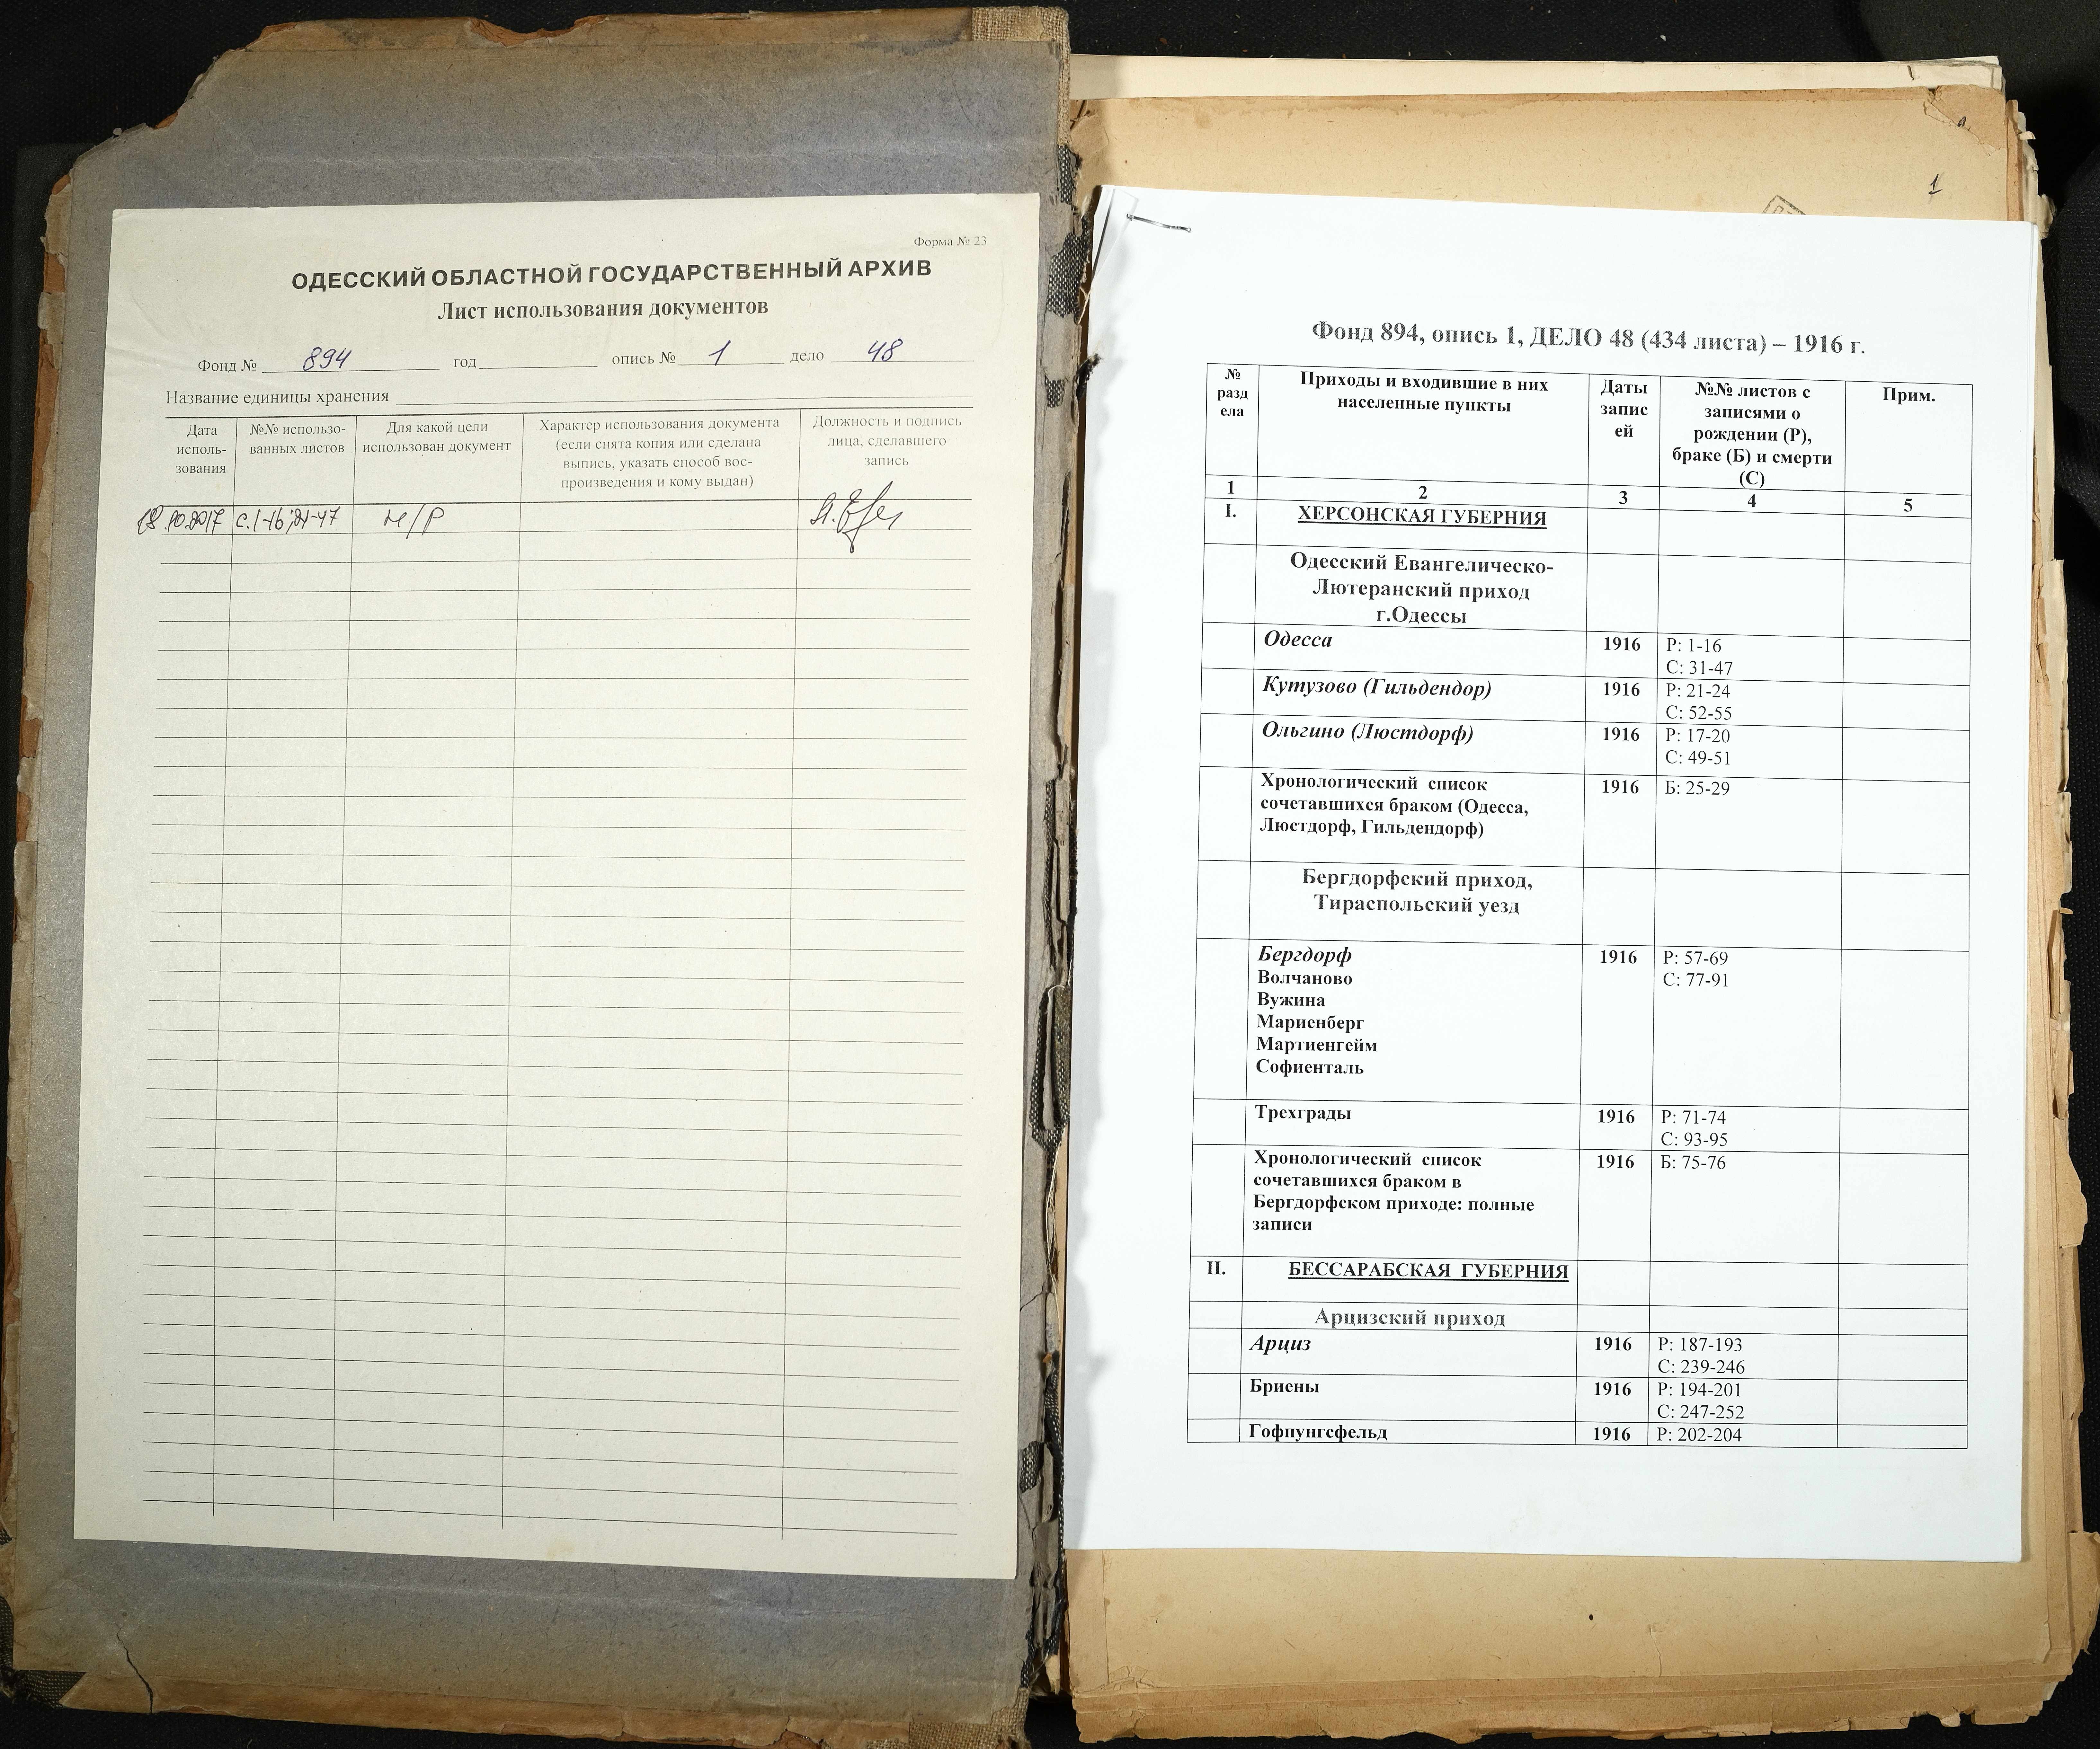 Форма № 23
ОДЕССКИЙ ОБЛАСТНОЙ ГОСУДАРСТВЕННЫЙ АРХИВ
Лист использования документов
Фонд № 894 год опись № 1 дело 48
Название единицы хранения
Дата исполь-зования
№№ использо-ванных листов
Для какой цели использован документ
Характер использования документа (если снята копия или сделана выпись, указать способ вос-произведения и кому выдан)
Должность и подпись лица, сделавшего запись
18.10.2017 с.1-16; н/р
1
Фонд 894, опись 1, ДЕЛО 48 (434 листа) – 1916 г.
№ разд ела
Приходы и входившие в них населенные пункты
Даты запис ей
№№ листов с записями о рождении (Р), браке (Б) и смерти (С)
Прим.
1 2 3 4 5
I. ХЕРСОНСКАЯ ГУБЕРНИЯ
Одесский Евангелическо-
Лютеранский приход
г.Одессы
Одесса 1916 Р: 1-16
С: 31-47
Кутузово (Гильдендор) 1916 Р: 21-24
С: 52-55
Ольгино (Люстдорф) 1916 Р: 17-20
С: 49-51
Хронологический список 1916 Б: 25-29
сочетавшихся браком (Одесса,
Люстдорф, Гильдендорф)
Бергдорфский приход,
Тираспольский уезд
Бергдорф 1916 Р: 57-69
Волчаново С: 77-91
Вужина
Мариенберг
Мартиенгейм
Софиенталь
Трехграды 1916 Р: 71-74
С: 93-95
Хронологический список 1916 Б: 75-76
сочетавшихся браком в
Бергдорфском приходе: полные
записи
II. БЕССАРАБСКАЯ ГУБЕРНИЯ
Арцизский приход
Арциз 1916 Р: 187-193
С: 239-246
Бриены 1916 Р: 194-201
С: 247-252
Гофпунгсфельд 1916 Р: 202-204